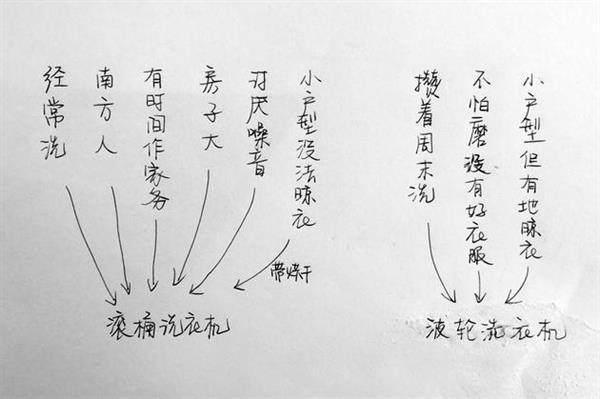 经常洗
南方人
有时间作家务
房子大
讨厌噪音
小户型没法晾衣
带烘干
滚桶洗衣机
攒着周末洗
不怕磨没有好衣服
小户型但有地晾衣
波轮洗衣机